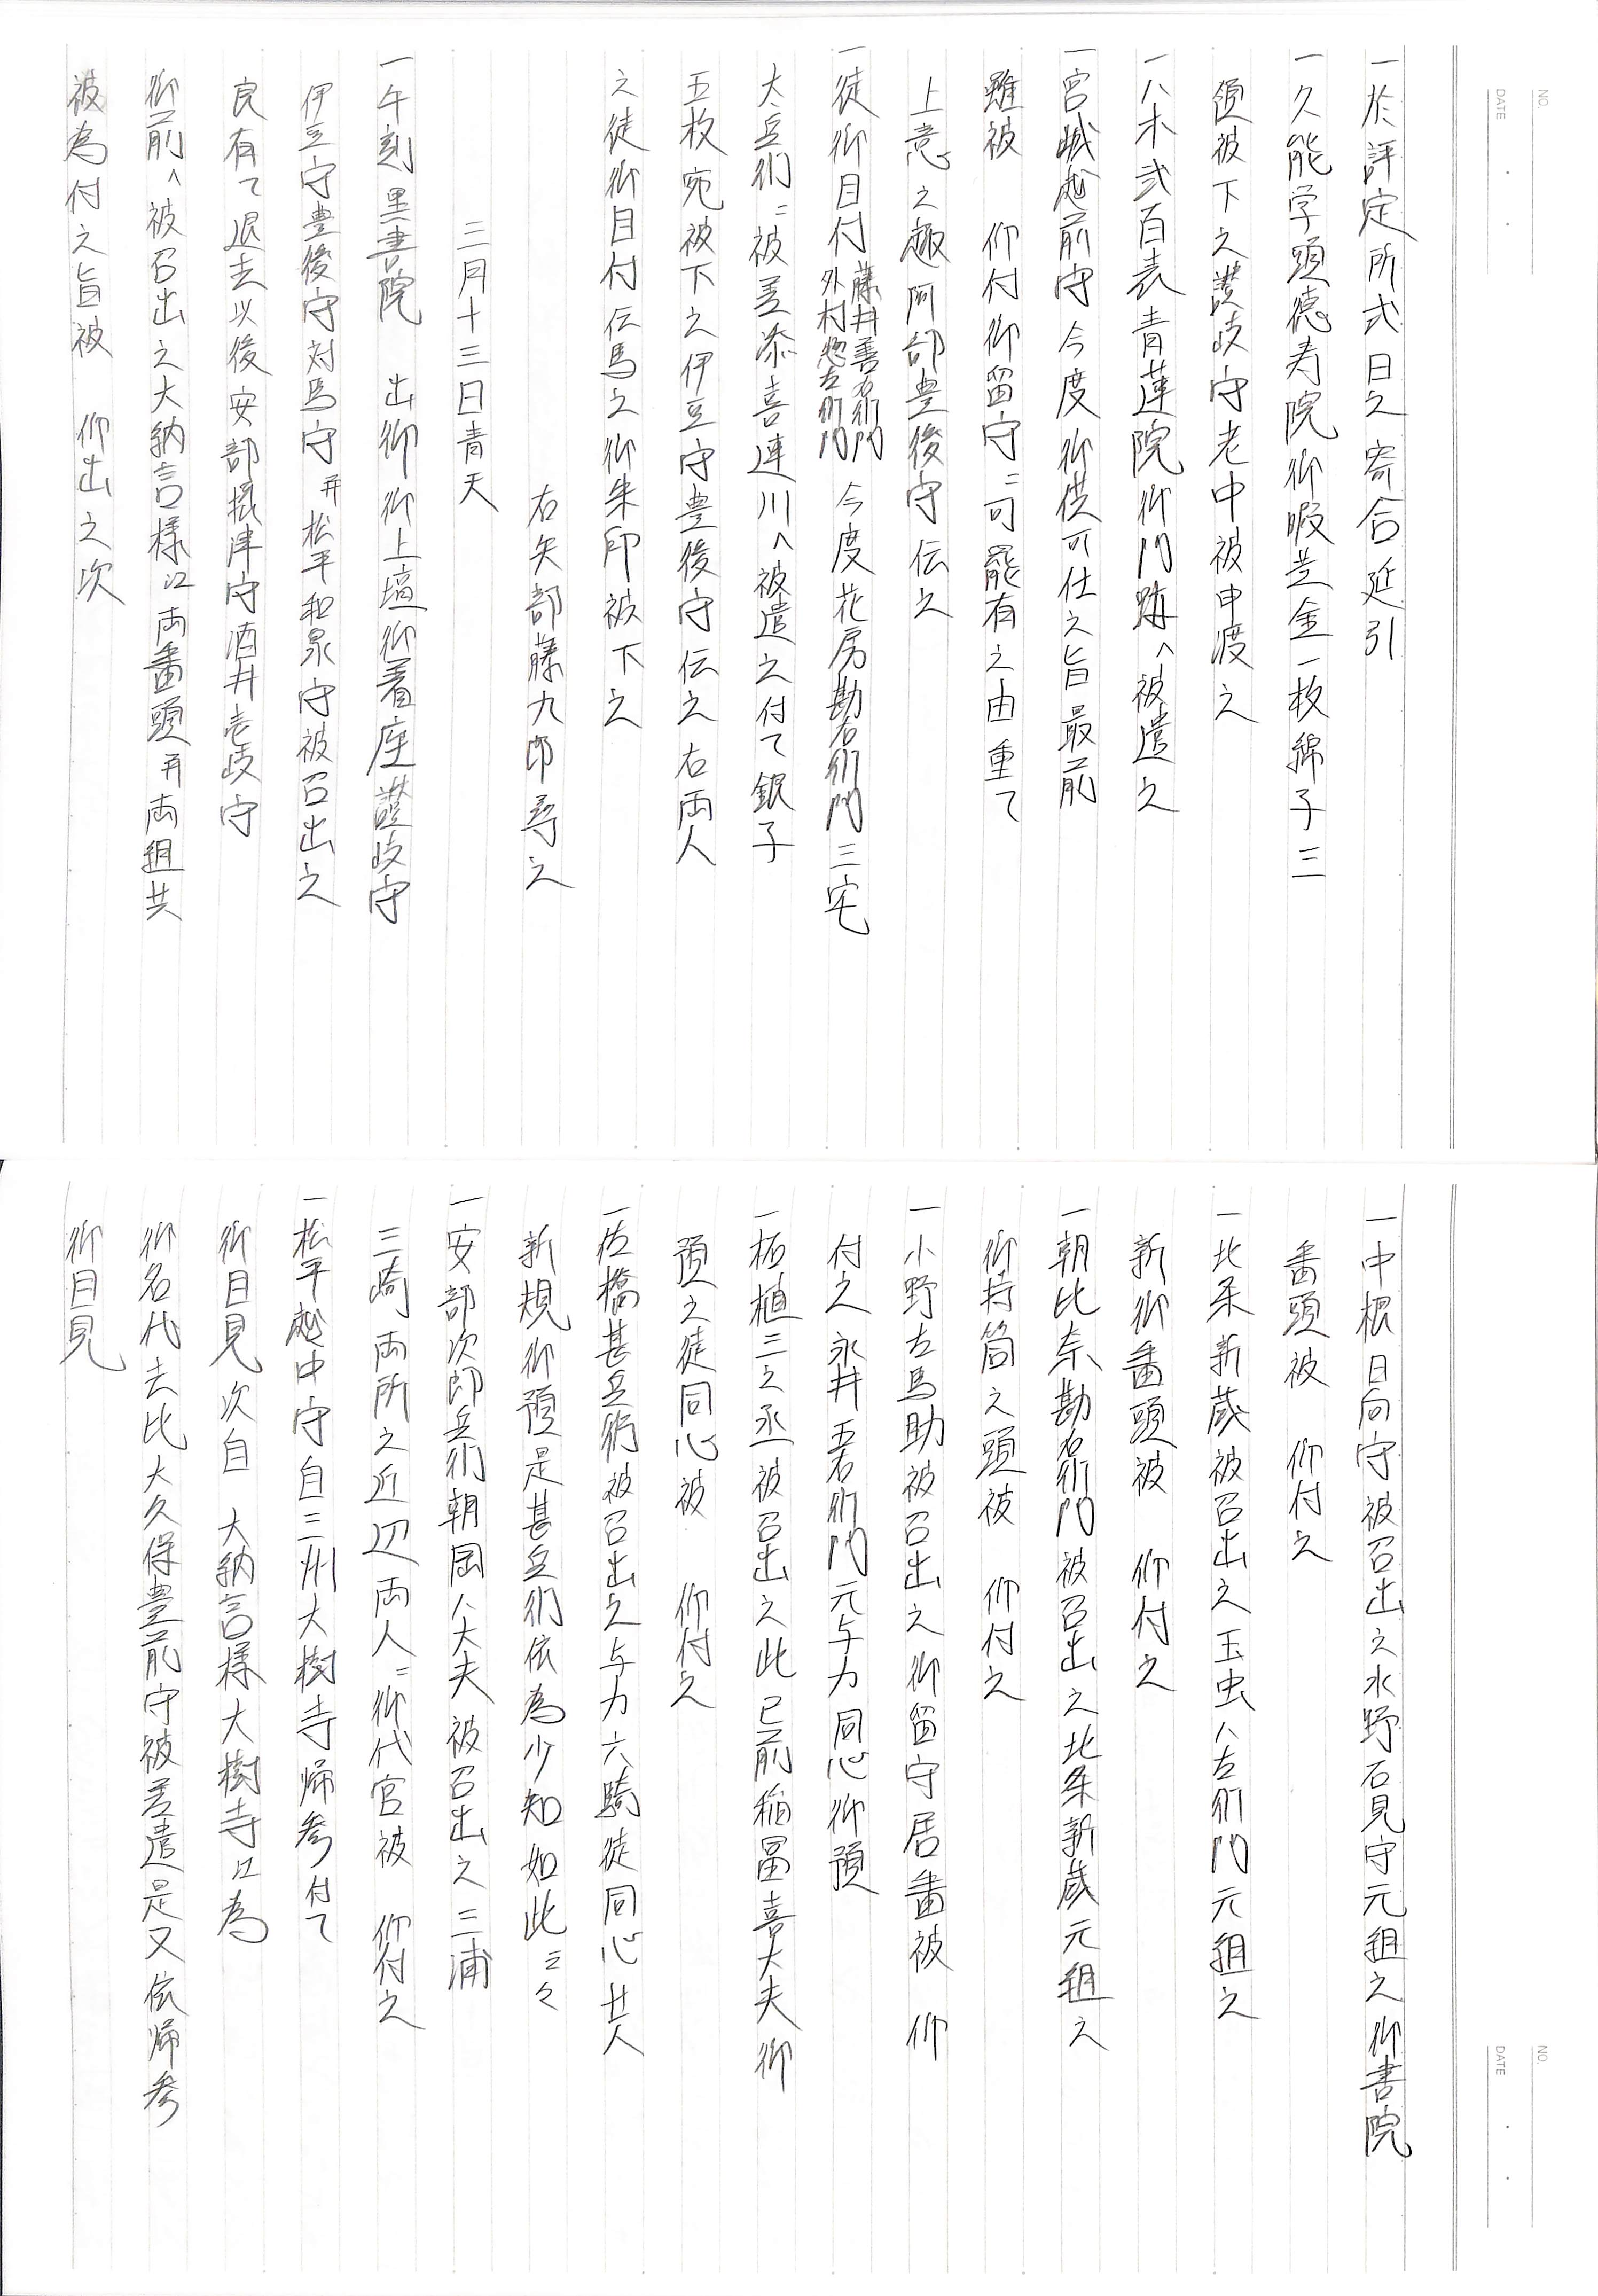 一於評定所式日之寄合延引
一久能学頭徳寿院御暇芝金一枚綿子三
領被下之讃岐守老中被申渡之
一八木弐百表青蓮院御門跡へ被遣之
一宮城越前守今度御供可仕之旨最前
雖被　仰付御留守ニ可罷有之由重て
上意之趣阿部豊後守伝之
一徒御目付藤井善右衛門外村惣左衛門今度花房勘右衛門三宅
大兵衛ニ被差添喜連川へ被遣之付て銀子
五枚宛被下之伊豆守豊後守伝之右両人
之徒御目付伝馬之御朱印被下之
右矢部藤九郎尋之
三月十三日青天
一午刻黒書院　出御御上壇御着座讃岐守
伊豆守豊後守対馬守并松平和泉守被召出之
良有て退去以後安部摂津守酒井壱岐守
御前へ被召出之大納言様江両番頭并両組共
被為付之旨被　仰出之次
一中根日向守被召出之水野石見守元組之御書院
番頭被　仰付之
一北条新蔵被召出之玉虫八左衛門元組之
新御番頭被　仰付之
一朝比奈勘右衛門被召出之北条新蔵元組之
御持筒之頭被　仰付之
一小野左馬助被召出之御留守居番被　仰
付之永井五右衛門元与力同心御預
一柘植三之丞被召出之此已前稲冨喜大夫御
預之徒同心被　仰付之
一佐橋甚兵衛被召出之与力六騎徒同心廿人
新規御預是甚兵衛依為少知如此云々
一安部次郎兵衛朝岡八大夫被召出之三浦
三崎両所之近辺両人ニ御代官被　仰付之
一松平越中守自三州大樹寺帰参付て
御目見次自　大納言様大樹寺江為
御名代去比大久保豊前守被差遣是又依帰参
御目見
NO.
DATE
NO.
DATE